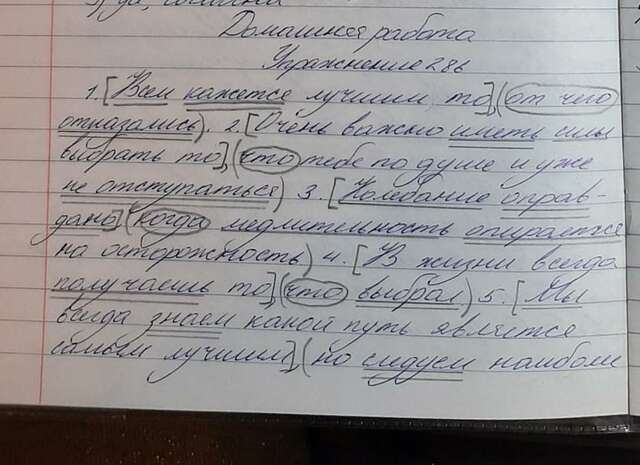 Домашняя работа
Упражнение 286
1. [Всем кажется лучшим то], (от чего
отказались). 2. [Очень важно иметь силы
выбрать то], (что тебе по душе и уже
не отступаться) 3. [Колебание оправ-
дано], (когда медлительность опирается
на осторожность) 4. [В жизни всегда
получаешь то], (что выбрал) 5. [Мы
всегда знаем какой путь является
самым лучшим], (но следуем наиболе